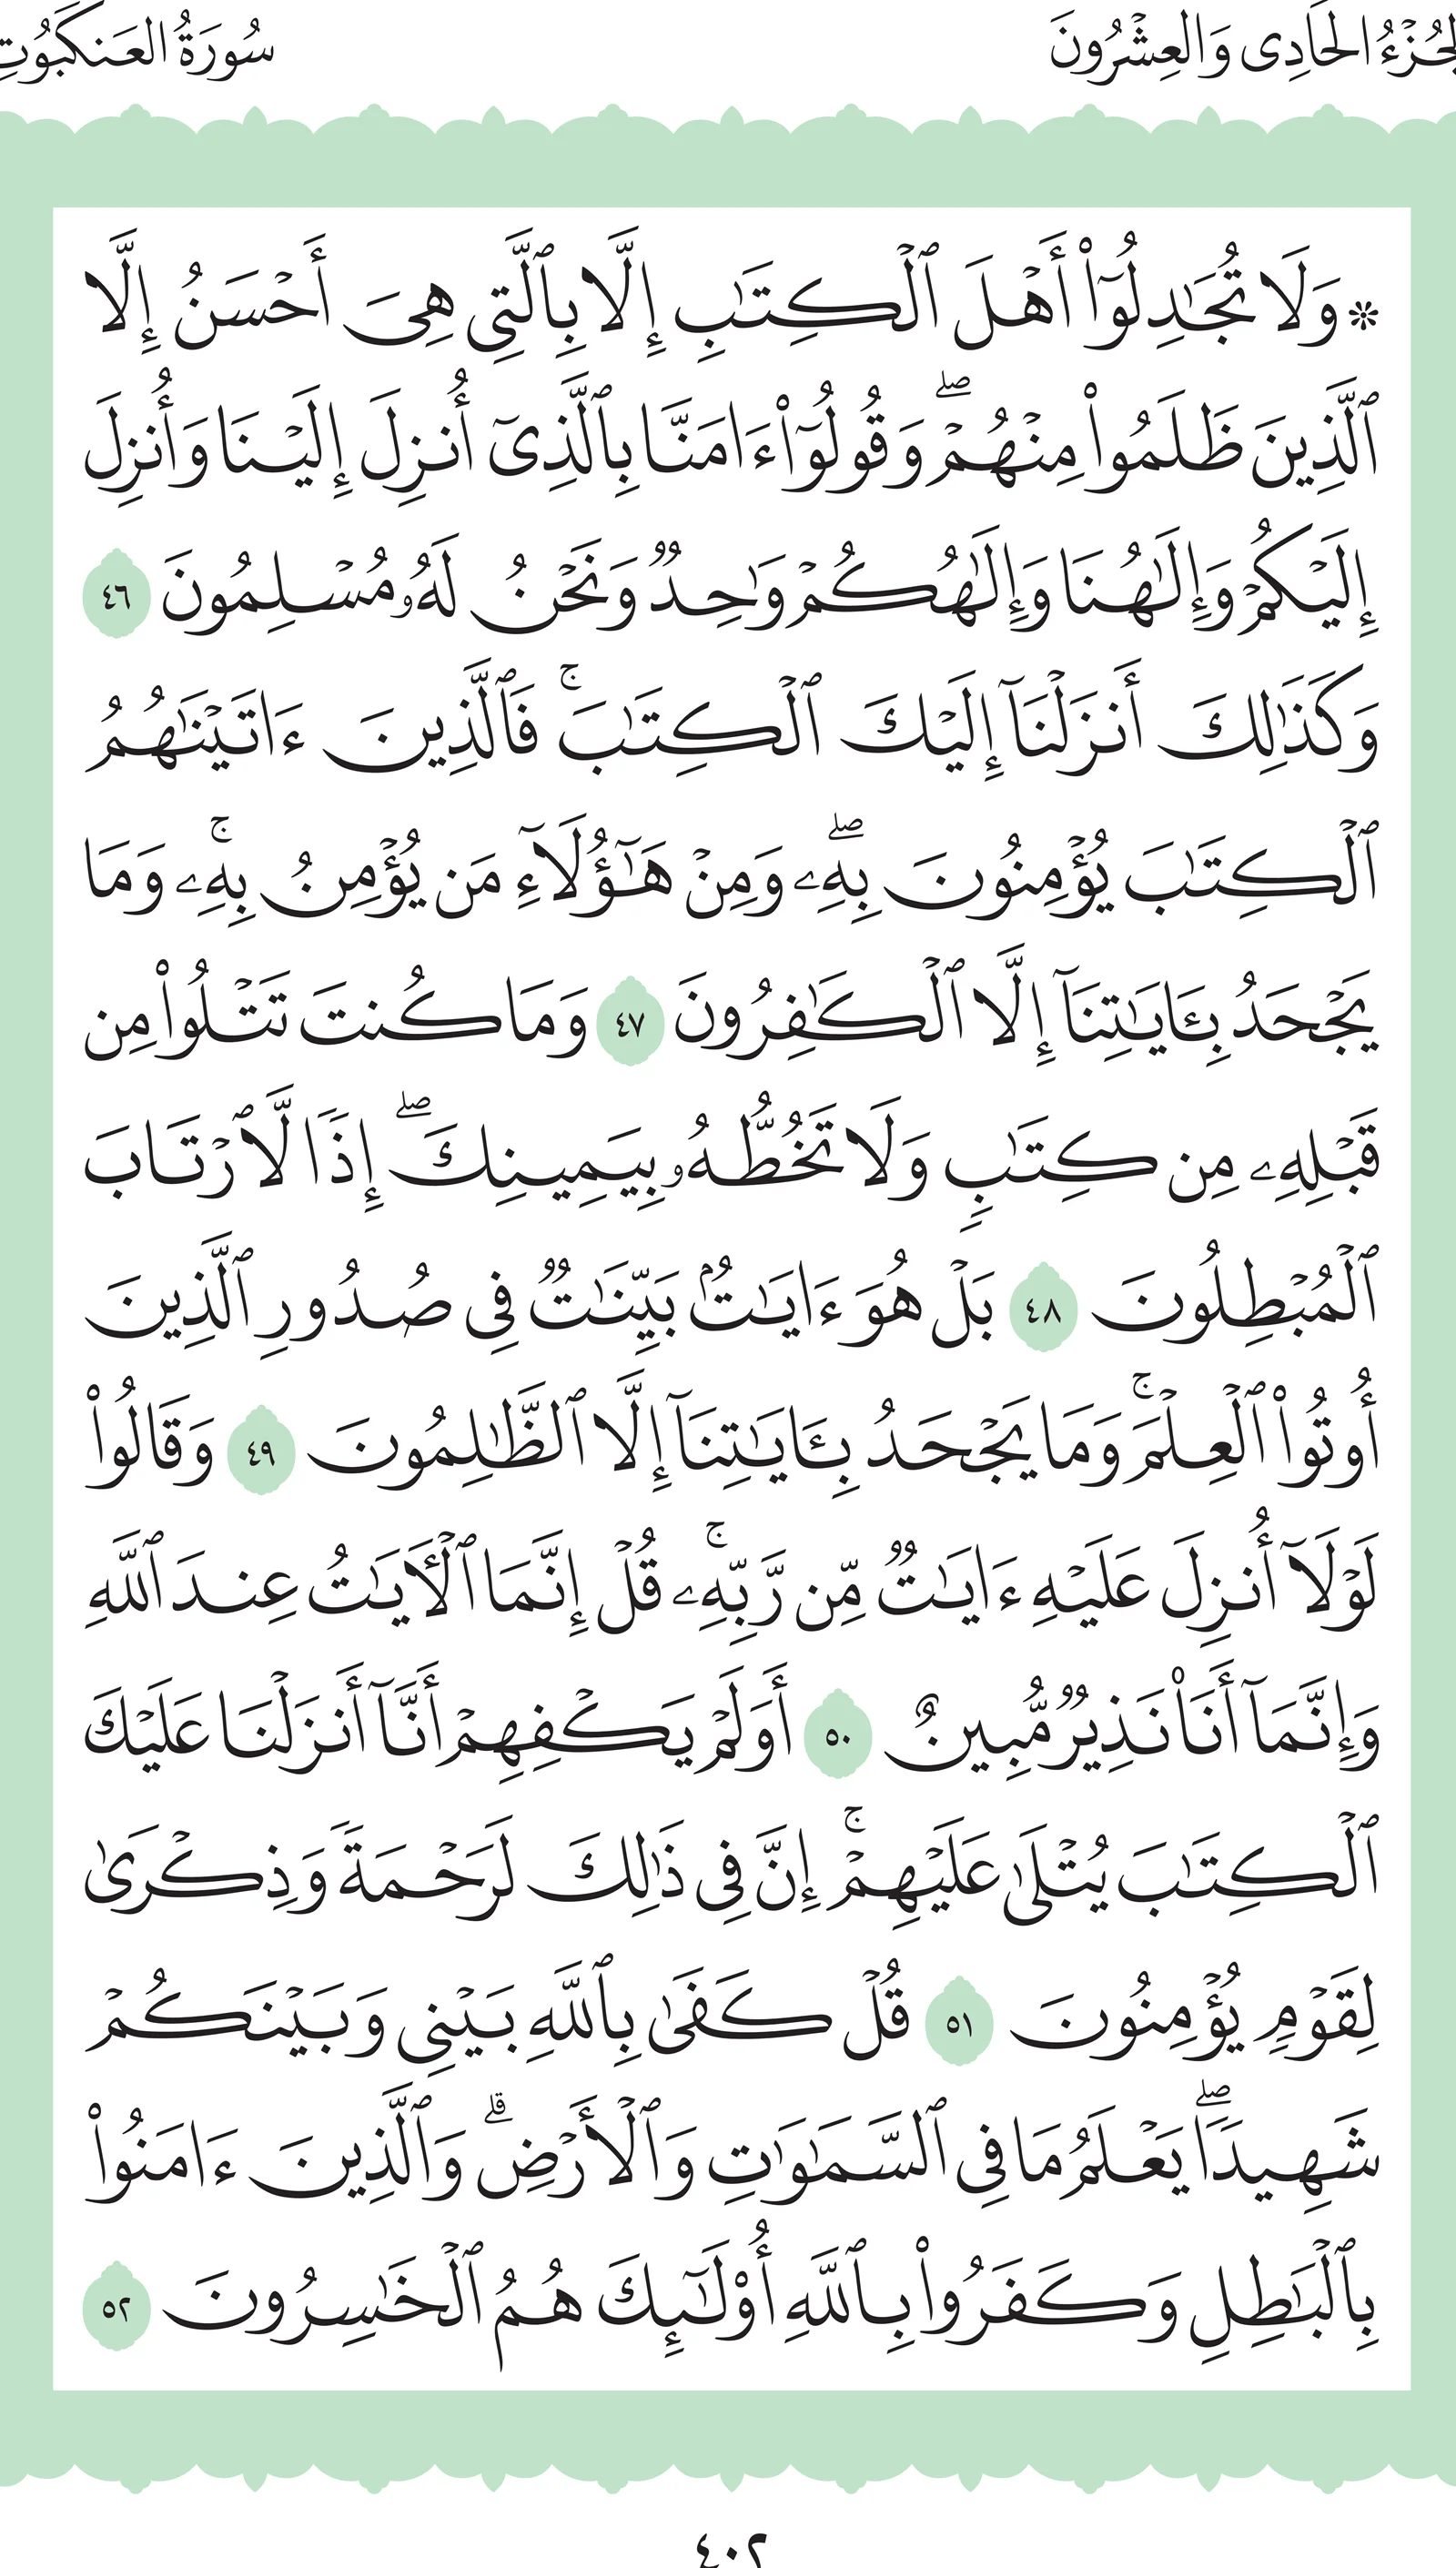 الجُزْءُ الحَادِى وَالعِشْرُونَ سُورَةُ العَنكَبُوتِ
۞ وَلَا تُجَٰدِلُوٓا۟ أَهْلَ ٱلْكِتَٰبِ إِلَّا بِٱلَّتِى هِىَ أَحْسَنُ إِلَّا
ٱلَّذِينَ ظَلَمُوا۟ مِنْهُمْ ۖ وَقُولُوٓا۟ ءَامَنَّا بِٱلَّذِىٓ أُنزِلَ إِلَيْنَا وَأُنزِلَ
إِلَيْكُمْ وَإِلَٰهُنَا وَإِلَٰهُكُمْ وَٰحِدٌ وَنَحْنُ لَهُۥ مُسْلِمُونَ ٤٦
وَكَذَٰلِكَ أَنزَلْنَآ إِلَيْكَ ٱلْكِتَٰبَ ۚ فَٱلَّذِينَ ءَاتَيْنَٰهُمُ
ٱلْكِتَٰبَ يُؤْمِنُونَ بِهِۦ ۖ وَمِنْ هَٰٓؤُلَآءِ مَن يُؤْمِنُ بِهِۦ ۚ وَمَا
يَجْحَدُ بِـَٔايَٰتِنَآ إِلَّا ٱلْكَٰفِرُونَ ٤٧ وَمَا كُنتَ تَتْلُوا۟ مِن
قَبْلِهِۦ مِن كِتَٰبٍ وَلَا تَخُطُّهُۥ بِيَمِينِكَ ۖ إِذًا لَّٱرْتَابَ
ٱلْمُبْطِلُونَ ٤٨ بَلْ هُوَ ءَايَٰتٌۢ بَيِّنَٰتٌ فِى صُدُورِ ٱلَّذِينَ
أُوتُوا۟ ٱلْعِلْمَ ۚ وَمَا يَجْحَدُ بِـَٔايَٰتِنَآ إِلَّا ٱلظَّٰلِمُونَ ٤٩ وَقَالُوا۟
لَوْلَآ أُنزِلَ عَلَيْهِ ءَايَٰتٌ مِّن رَّبِّهِۦ ۚ قُلْ إِنَّمَا ٱلْـَٔايَٰتُ عِندَ ٱللَّهِ
وَإِنَّمَآ أَنَا۠ نَذِيرٌ مُّبِينٌ ٥٠ أَوَلَمْ يَكْفِهِمْ أَنَّآ أَنزَلْنَا عَلَيْكَ
ٱلْكِتَٰبَ يُتْلَىٰ عَلَيْهِمْ ۚ إِنَّ فِى ذَٰلِكَ لَرَحْمَةً وَذِكْرَىٰ
لِقَوْمٍ يُؤْمِنُونَ ٥١ قُلْ كَفَىٰ بِٱللَّهِ بَيْنِى وَبَيْنَكُمْ
شَهِيدًا ۖ يَعْلَمُ مَا فِى ٱلسَّمَٰوَٰتِ وَٱلْأَرْضِ ۗ وَٱلَّذِينَ ءَامَنُوا۟
بِٱلْبَٰطِلِ وَكَفَرُوا۟ بِٱللَّهِ أُو۟لَٰٓئِكَ هُمُ ٱلْخَٰسِرُونَ ٥٢
٤٠٢